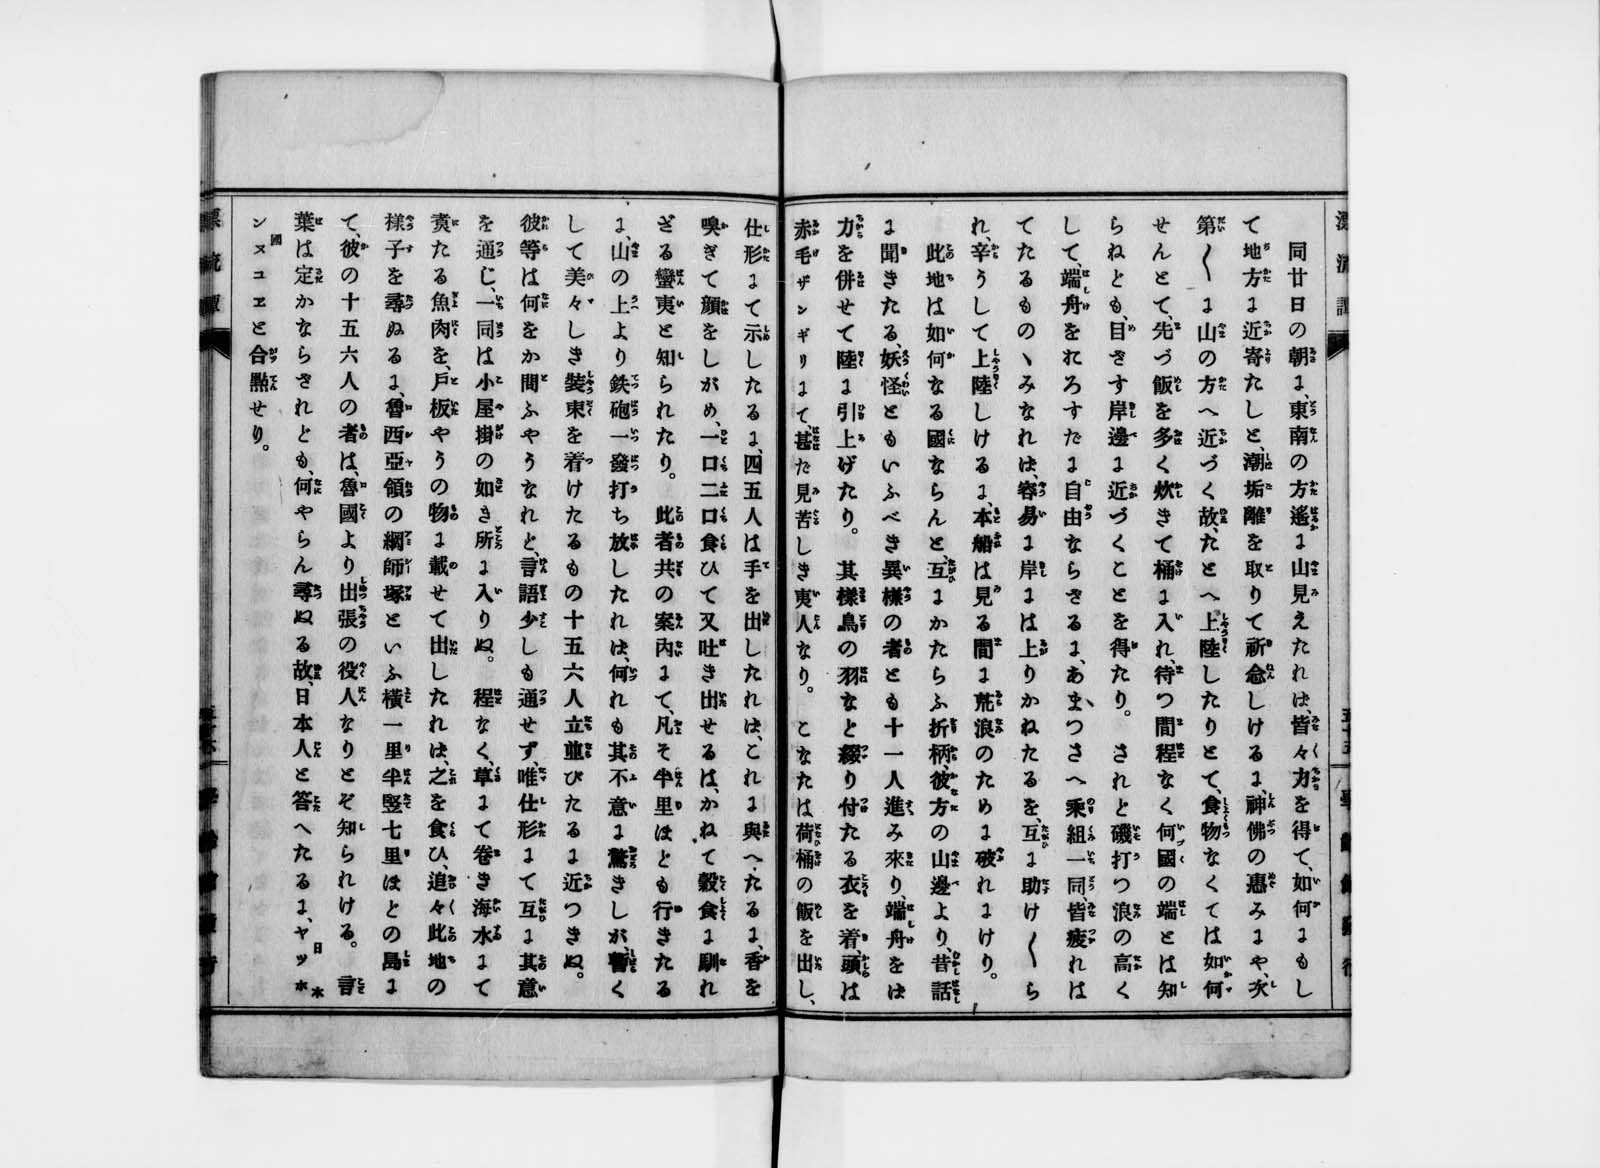 漂流譚
同廿日の朝ま、東南の方遙ま山見えたれは、皆々力を得て、如何まもし
て地方ま近寄たしと、潮垢離を取りて祈念しけるま、神佛の惠みまや、次
第〱ま山の方へ近づく故、たとへ上陸したりとて、食物なくては如何
せんとて、先づ飯を多く炊きて桶ま入れ、待つ間程なく何國の端とは知
らねとも、目さす岸邊ま近づくことを得たり。　されと磯打つ浪の高く
して、端舟をれろすたま自由ならさるま、あまつさへ乘組一同、皆疲れは
てたるものヽみなれは、容易ま岸まは上りかねたるを、互ま助け〱ら
れ、辛うして上陸しけるま、本船は見る間ま荒浪のためま破れまけり。
此地は如何なる國ならんと、互まかたらふ折柄、彼方の山邊より、昔話
ま聞きたる、妖怪ともいふべき異樣の者とも十一人進み來り、端舟をは
力を併せて陸ま引上げたり。　其樣鳥の羽なと綴り付たる衣を着、頭は
赤毛ザンギリまて、甚た見苦しき夷人なり。　こなたは荷桶の飯を出し、
仕形まて示したるま、四五人は手を出したれは、これま與へたるま、香を
嗅ぎて顔をしがめ、一口二口食ひて又吐き出せるは、かねて穀食ま馴れ
ざる蠻夷と知られたり。　此者共の案内まて、凡そ半里ほとも行きたる
ま、山の上より鉄砲一發打ち放したれは、何れも其不意ま驚きしが、暫く
して美々しき裝束を着けたるもの十五六人立並びたるま近つきぬ。
彼等は何をか問ふやうなれと、言語少しも通せず、唯仕形まて互ま其意
を通じ、一同は小屋掛の如き所ま入りぬ。　程なく、草まて卷き海水まて
煑たる魚肉を、戸板やうの物ま載せて出したれは、之を食ひ、追々此地の
樣子を尋ぬるま、魯西亞領の綱師塚といふ橫一里半竪七里ほとの島ま
て、彼の十五六人の者は、魯國より出張の役人なりとぞ知られける。　言
葉は定かならされとも、何やらん尋ぬる故、日本人と答へたるま、ヤッホ
ンヌコヱと合點せり。
漂流譚